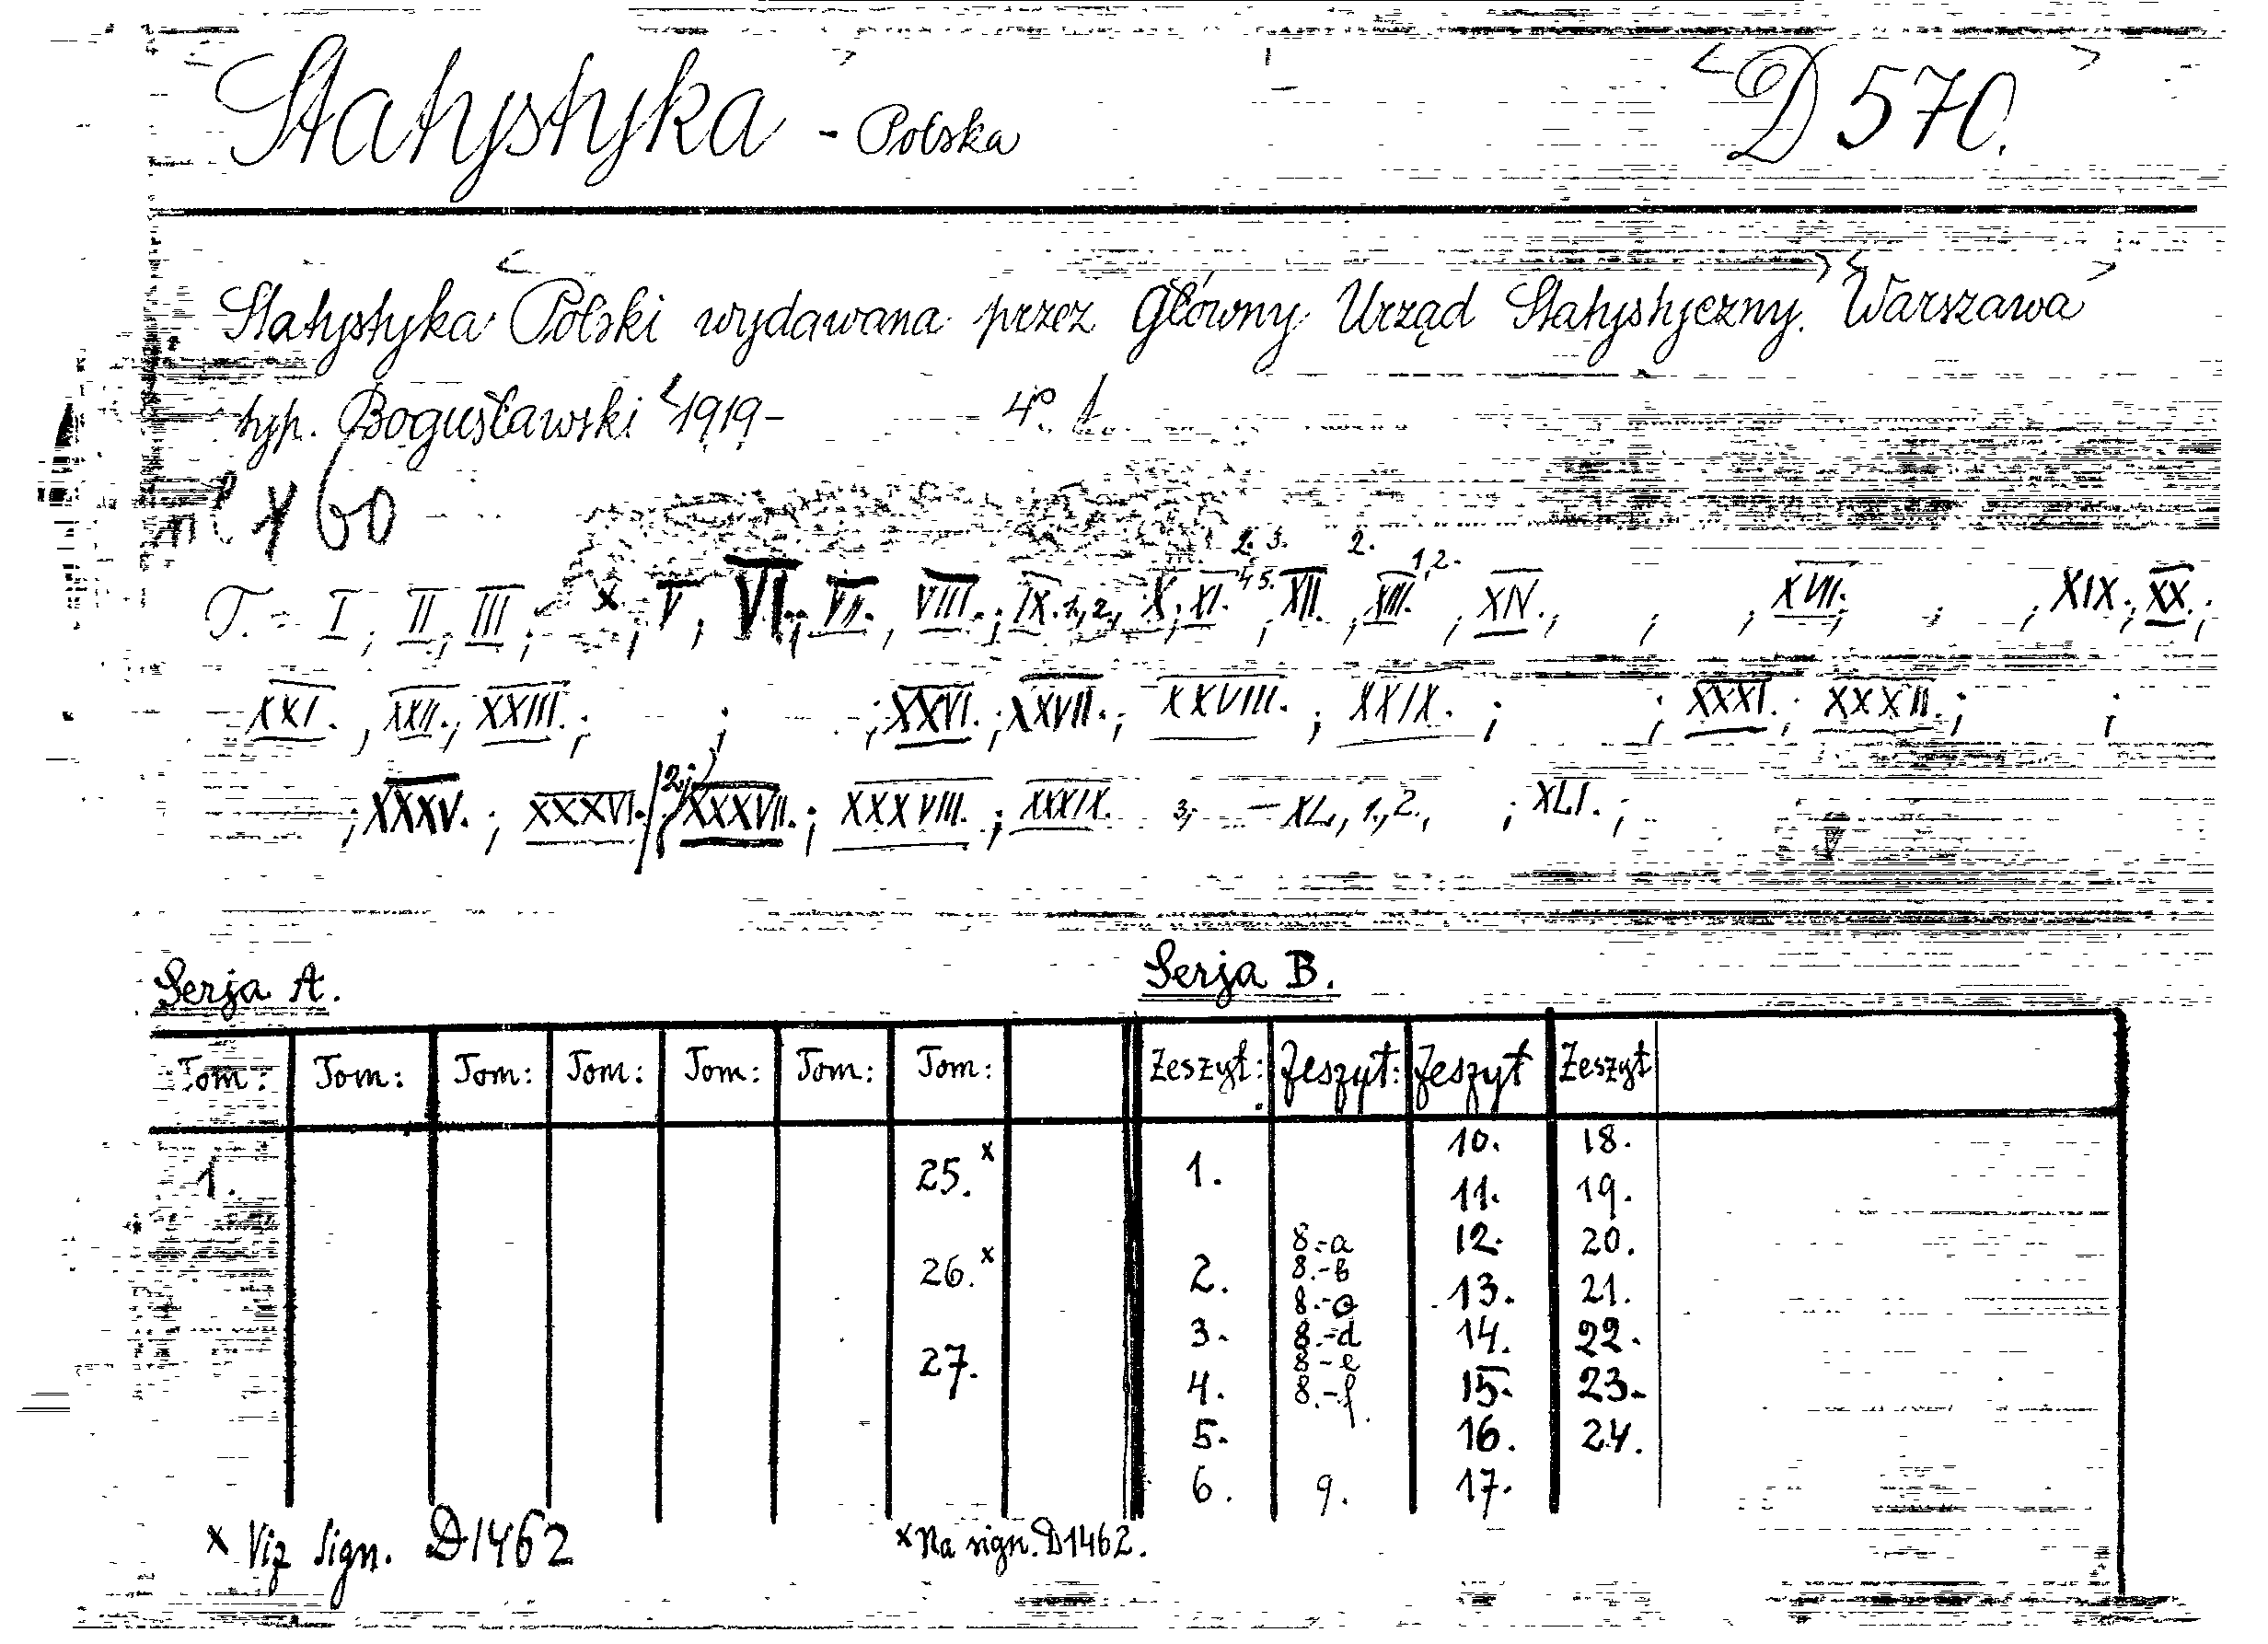 Statystyka - Polska D 570.
Statystyka Polski wydawana przez Główny Urząd Statystyczny. Warszawa
typ. Bogusławski 1919- 4° t.
x 60
2. 3. 2. 1,2.
T. - I, II, III; x; V, VI; VII., VIII.; IX. 1,2., X; XI. 45.; XII., XIII., XIV., , , XVII.; ; , XIX.; XX.;
XXI., XXII.; XXIII.; ; ; XXVI.; XXVII.; XXVIII.; XXIX.; ; XXXI.; XXXII.; ;
; XXXV.; XXXVI./2; XXXVII.; XXXVIII.; XXXIX. 3; - XL, 1., 2., ; XLI.;
Serja A. Serja B.
Tom: Tom: Tom: Tom: Tom: Tom: Tom: Zeszyt: Zeszyt: Zeszyt Zeszyt
10. 18.
1. 25.x 1.
11. 19.
8.-a 12. 20.
26.x 2. 8.-b
8.-c 13. 21.
3. 8.-d 14. 22.
27. 8-e
4. 8.-f. 15. 23.
5. 16. 24.
6. 9. 17.
x Viz sign. D1462 x Na sign. D1462.